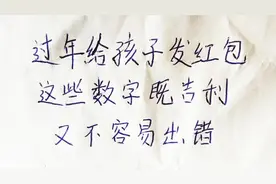 过年给孩子发红包
这些数字既吉利
又不容易出错